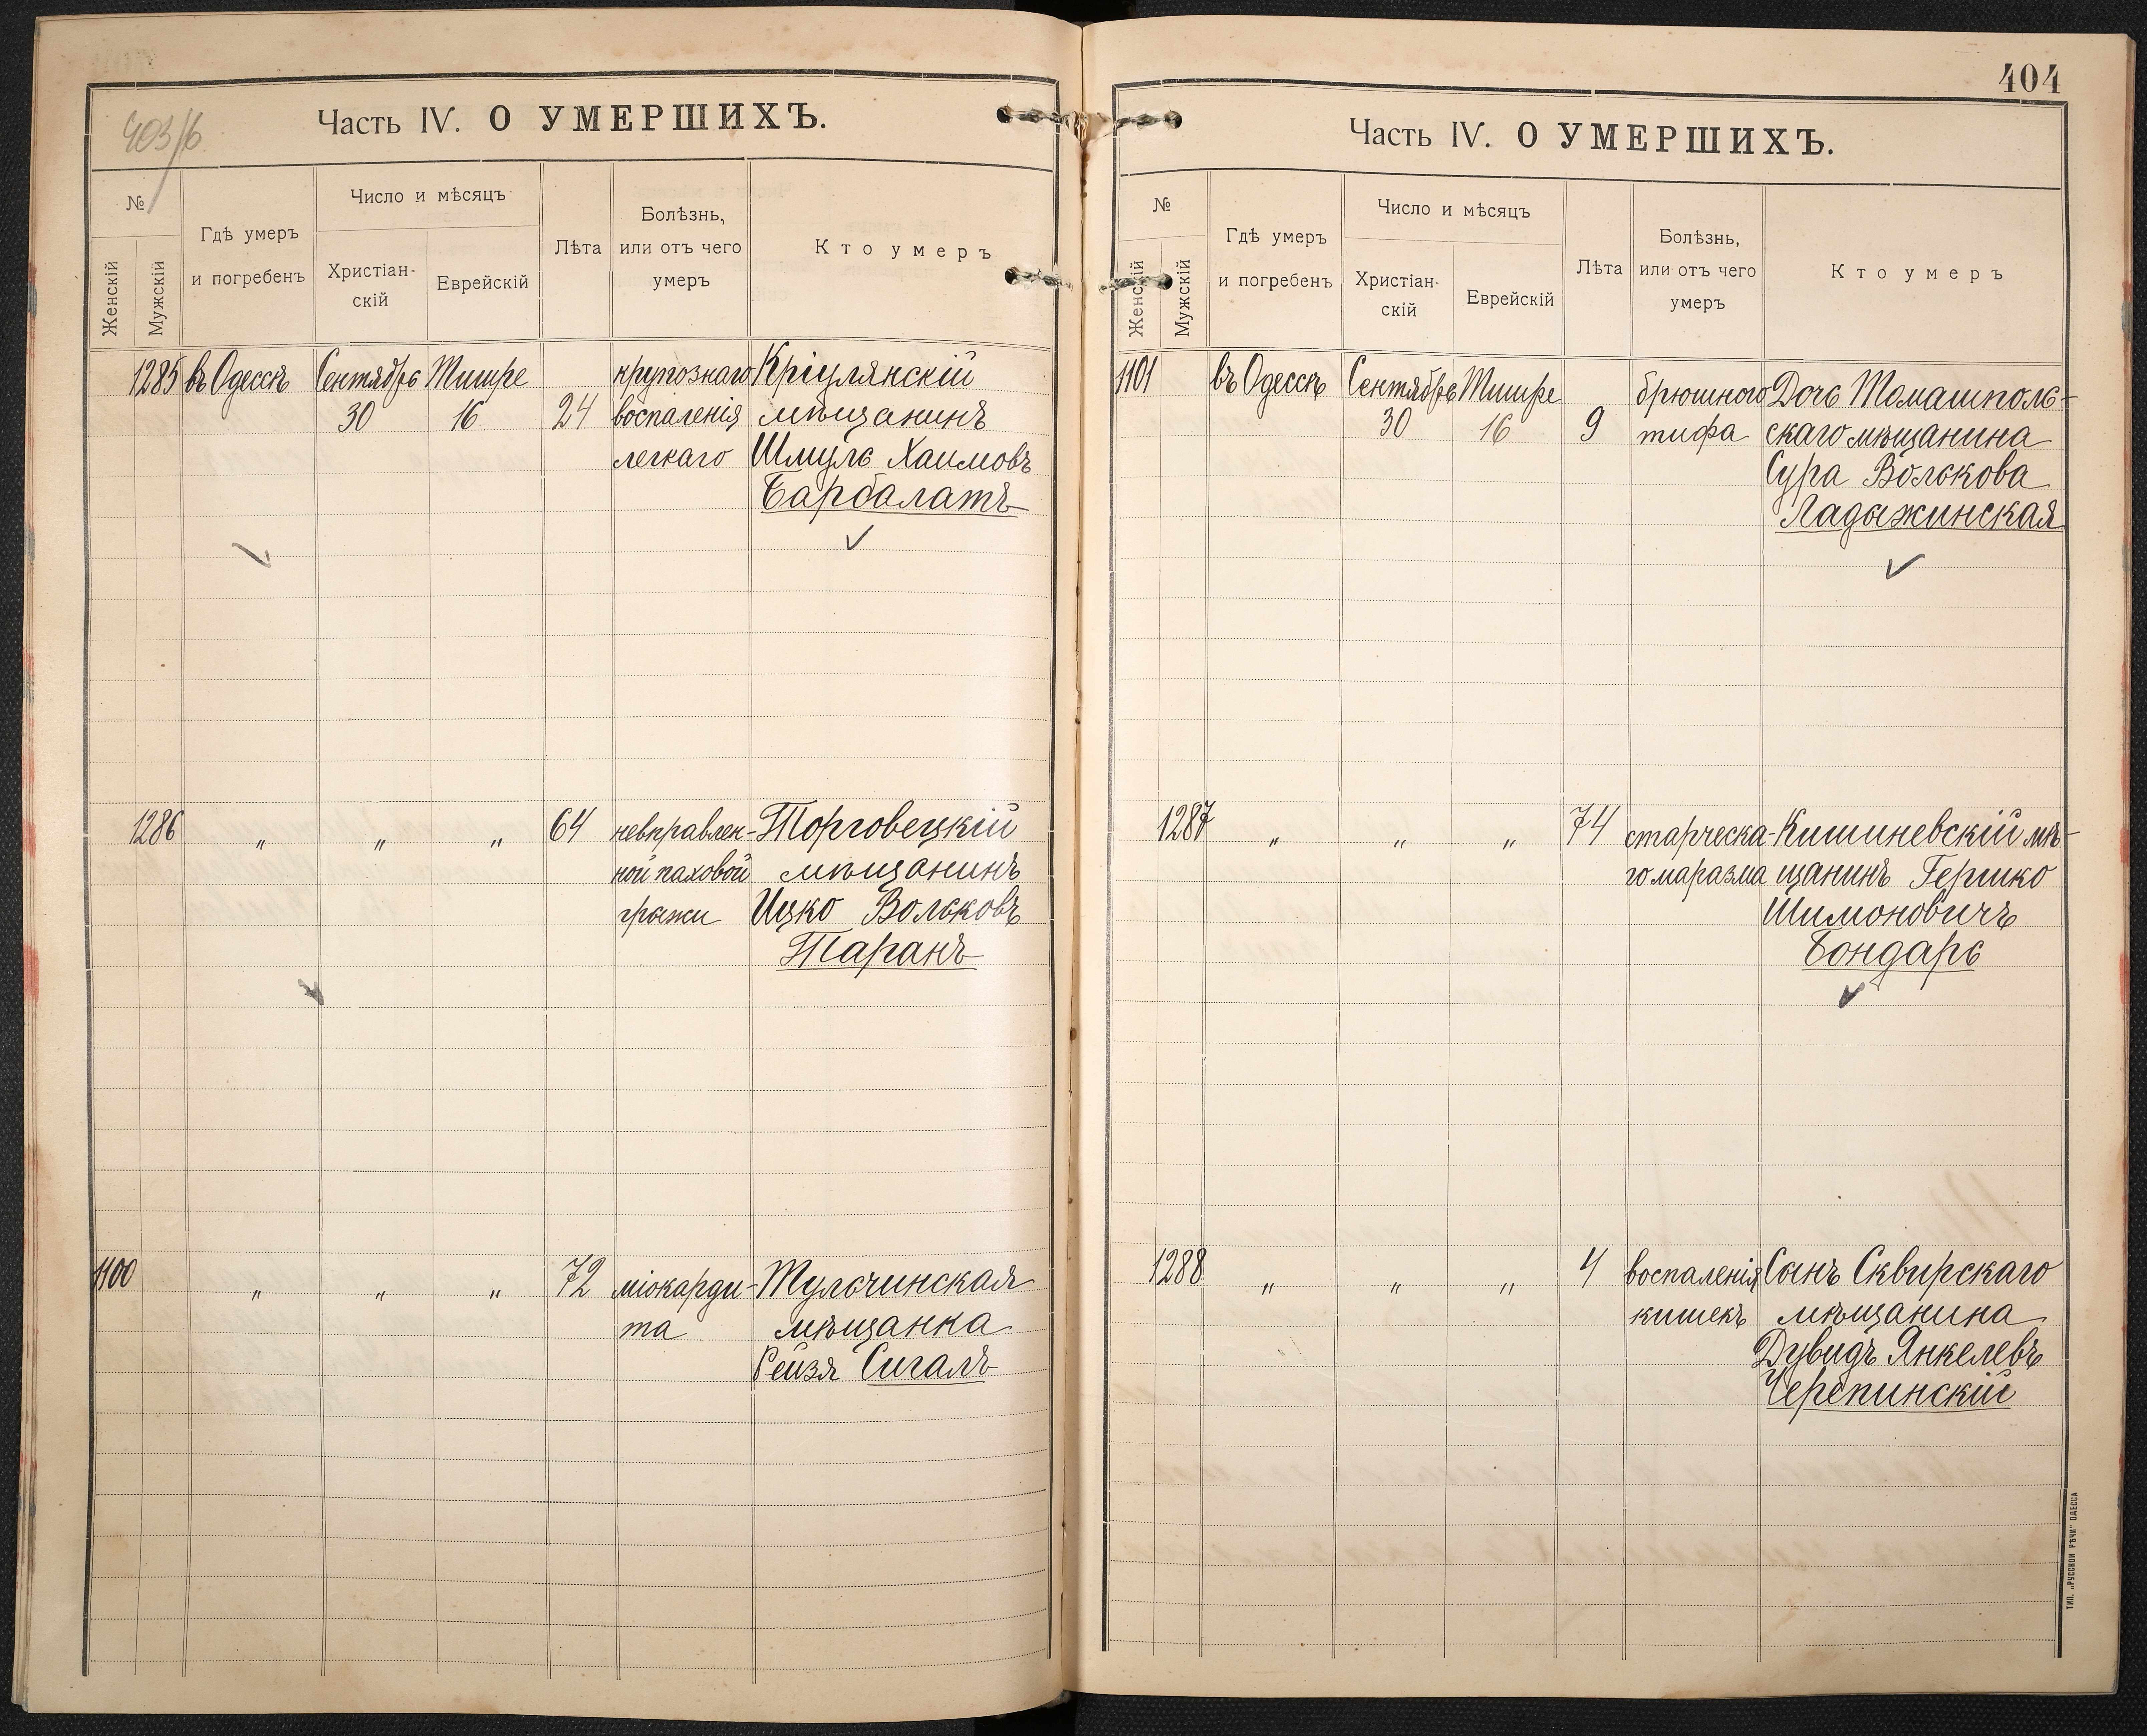 403/б
Часть IV. О УМЕРШИХЪ.
№
Женскій
Мужскій
Гдѣ умеръ
и погребенъ
Число и мѣсяцъ
Христіан-
скій
Еврейскій
Лѣта
Болѣзнь,
или отъ чего
умеръ
Кто умеръ
1285 въ Одессѣ Сентябрь Тишре крупознаго Кріулянскій
30 16 24 воспаленія мѣщанинъ
легкаго Шмуль Хаимовъ
Барбалатъ
1286 " " " 64 невправлен- Торговецкій
ной паховой мѣщанинъ
грыжи Ицко Вольковъ
Таранъ
1100 " " " 72 міокарди- Тульчинская
та мѣщанка
Рейзя Сигалъ
404
Часть IV. О УМЕРШИХЪ.
№
Женскій
Мужскій
Гдѣ умеръ
и погребенъ
Число и мѣсяцъ
Христіан-
скій
Еврейскій
Лѣта
Болѣзнь,
или отъ чего
умеръ
Кто умеръ
1101 въ Одессѣ Сентябрь Тишре брюшного Дочь Томашполь-
30 16 9 тифа скаго мѣщанина
Сура Волькова
Ладыжинская
1287 " " " 74 старческа- Кишиневскій мѣ-
го маразма щанинъ Гершко
Шимоновичъ
Бондарь
1288 " " " 4 воспаленія Сынъ Сквирскаго
кишекъ мѣщанина
Дувидъ Янкелевъ
Черепинскій
ТИП. „РУССКОЙ РѢЧИ" ОДЕССА